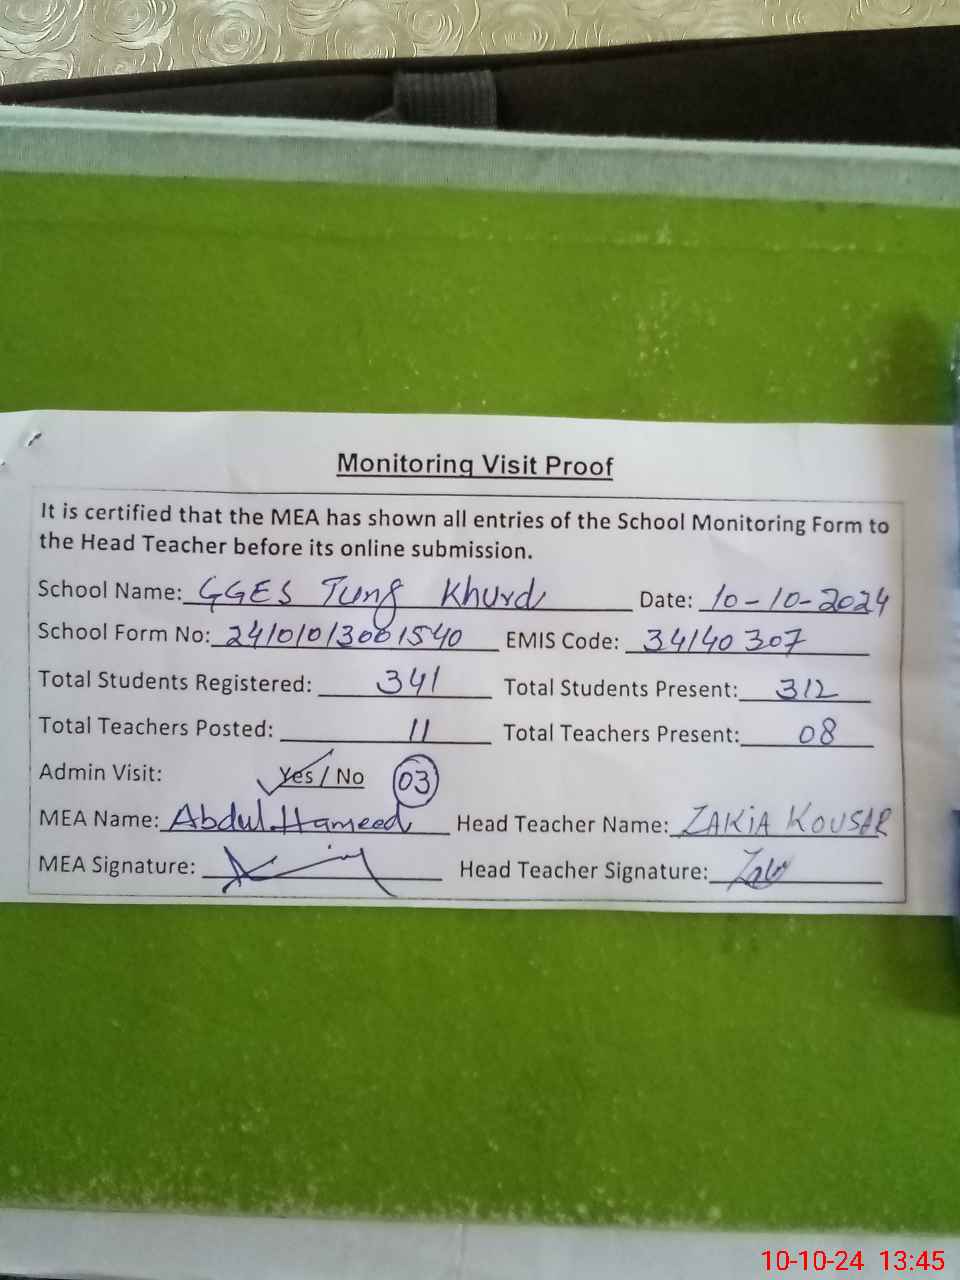 Monitoring Visit Proof
It is certified that the MEA has shown all entries of the School Monitoring Form to
the Head Teacher before its online submission.
School Name: GGES Tung Khurd Date: 10-10-2024
School Form No: 24101013001540 EMIS Code: 34140307
Total Students Registered: 341 Total Students Present: 312
Total Teachers Posted: 11 Total Teachers Present: 08
Admin Visit: Yes / No 03
MEA Name: Abdul Hameed Head Teacher Name: ZAKIA KOUSAR
MEA Signature: Head Teacher Signature:
10-10-24 13:45